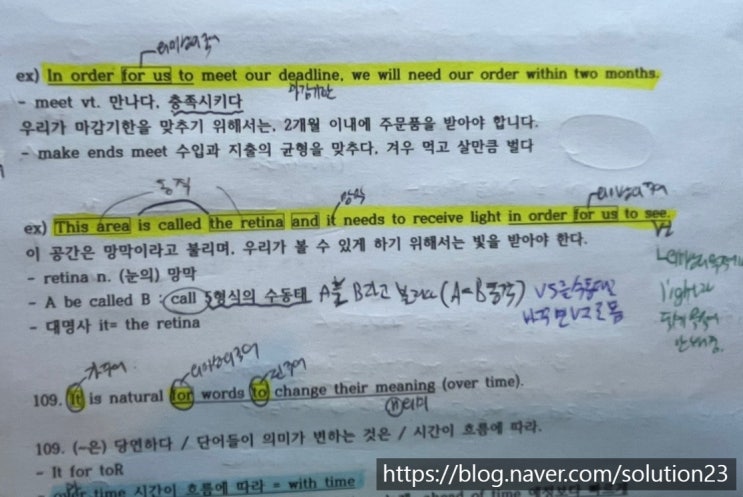 의미상주어
ex) In order for us to meet our deadline, we will need our order within two months.
마감기한
- meet vt. 만나다, 충족시키다
우리가 마감기한을 맞추기 위해서는, 2개월 이내에 주문품을 받아야 합니다.
- make ends meet 수입과 지출의 균형을 맞추다, 겨우 먹고 살만큼 벌다
동격 망막 의미상주어
ex) This area is called the retina and it needs to receive light in order for us to see.
이 공간은 망막이라고 불리며, 우리가 볼 수 있게 하기 위해서는 빛을 받아야 한다.
- retina n. (눈의) 망막
- A be called B : call 5형식의 수동태 A를 B라고 부르다 (A=B동격)
- 대명사 it= the retina
light
가주어 의미상주어 진주어
109. It is natural for words to change their meaning (over time).
의미
109. (~은) 당연하다 / 단어들이 의미가 변하는 것은 / 시간이 흐름에 따라.
- It for toR
over time 시간이 흐름에 따라 = with time
ahead of time
https://blog.naver.com/solution23